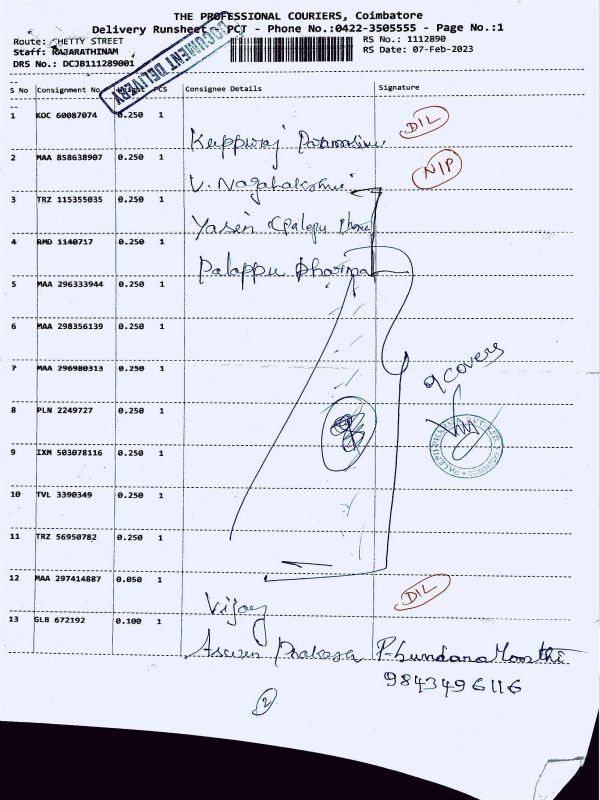 THE PROFESSIONAL COURIERS, Coimbatore
Delivery Runsheet - PCT - Phone No.:0422-3505555 - Page No.:1
Route: CHETTY STREET
RS No.: 1112890
Staff: RAJARATHINAM
RS Date: 07-Feb-2023
DRS No.: DCJB111289001
DOCUMENT DELIVERY
S No Consignment No. Weight PCS Consignee Details Signature
1 KOC 60087074 0.250 1 DIL
2 MAA 858638907 0.250 1 NIP
V. Nagahakshmi
3 TRZ 115355035 0,250 1
Yasin (Palepu Pharma)
4 RMD 1140717 0.250 1
Palappu Pharma
5 MAA 296333944 0.250 1
6 MAA 298356139 0.250 1
7 MAA 296980313 0.250 1
9 covers
8 PLN 2249727 0.250 1
9 IXM 503078116 0.250 1
10 TVL 3390349 0.250 1
11 TRZ 56950782 0.250 1
12 MAA 297414887 0.050 1 DIL
Vijay
13 GLB 672192 0.100 1
9843496116
2